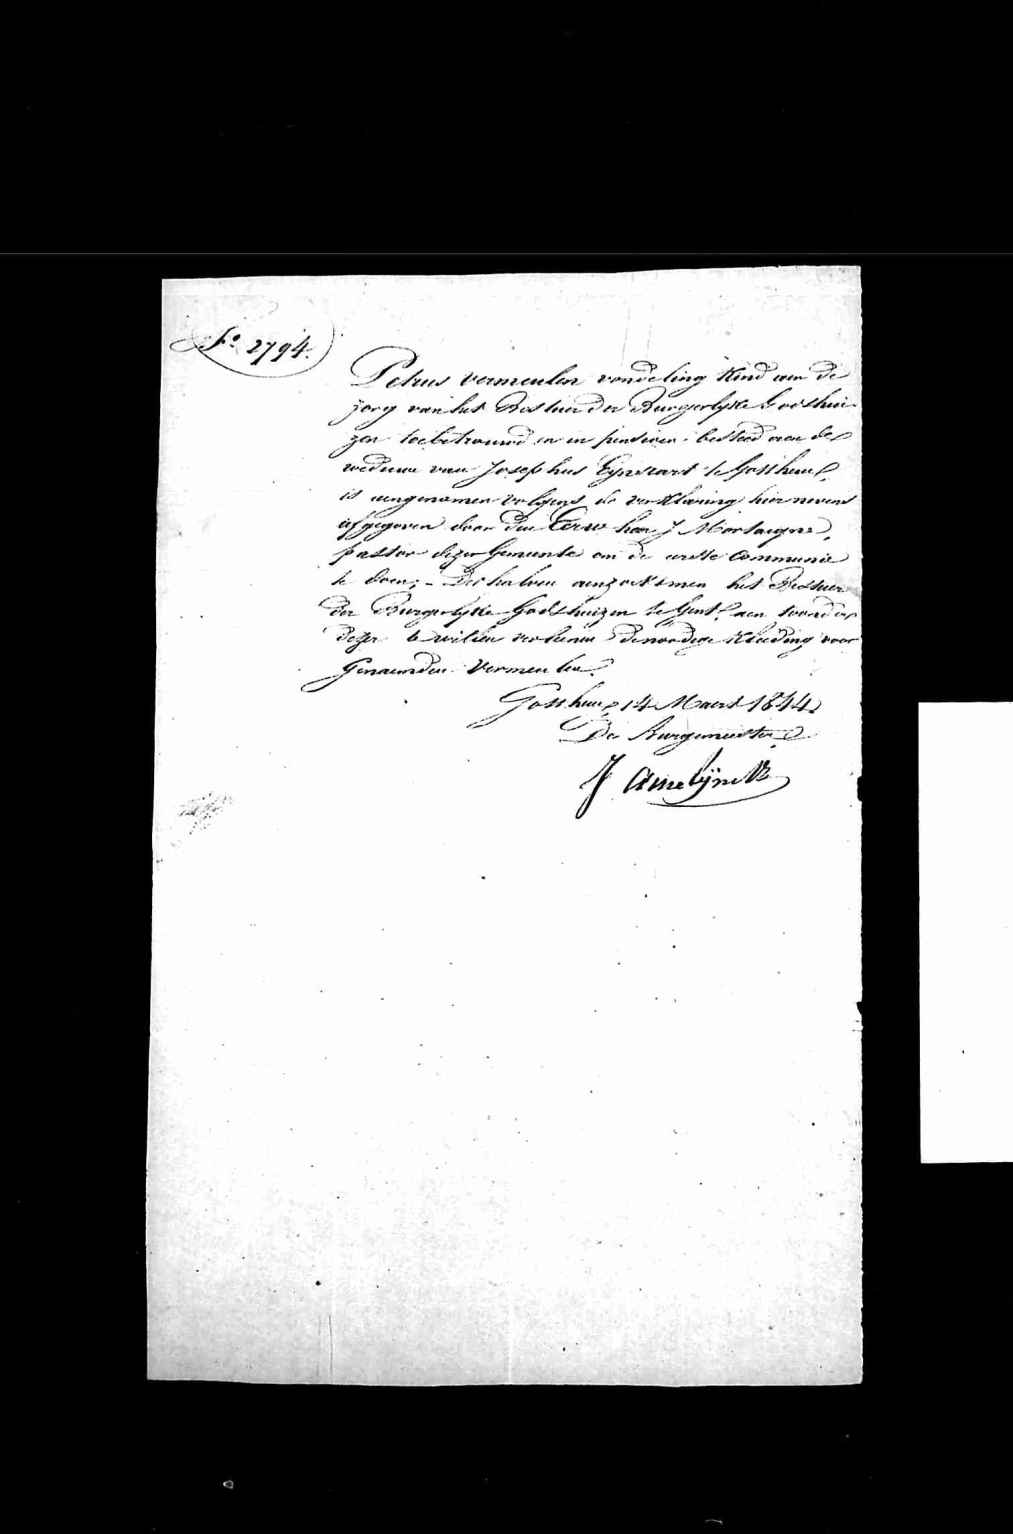 f.º 2794.
Petrus Vermeulen vondeling Kind aen de
zorg van het Bestuer der Burgerlyke Godshui-
zen toebetrouwd en in pensioen besteed aen de
weduwe van Josephus Eynsaert te Gotthem,
is aengenomen volgens de verklaring hier nevens
afgegeven door den Eerw. heer J Mortaigne,
pastor dezer Gemeente om de eerste Communie
te doen; - Des halven aenzoekt men het Bestuer
der Burgerlyke Godshuizen te Gent, aen toonder
dezer te willen verleenen de noodige Kleeding voor
Genaemden Vermeulen.
Gotthem, 14 Maert 1844.
De Burgemeester,
J Amelÿnck